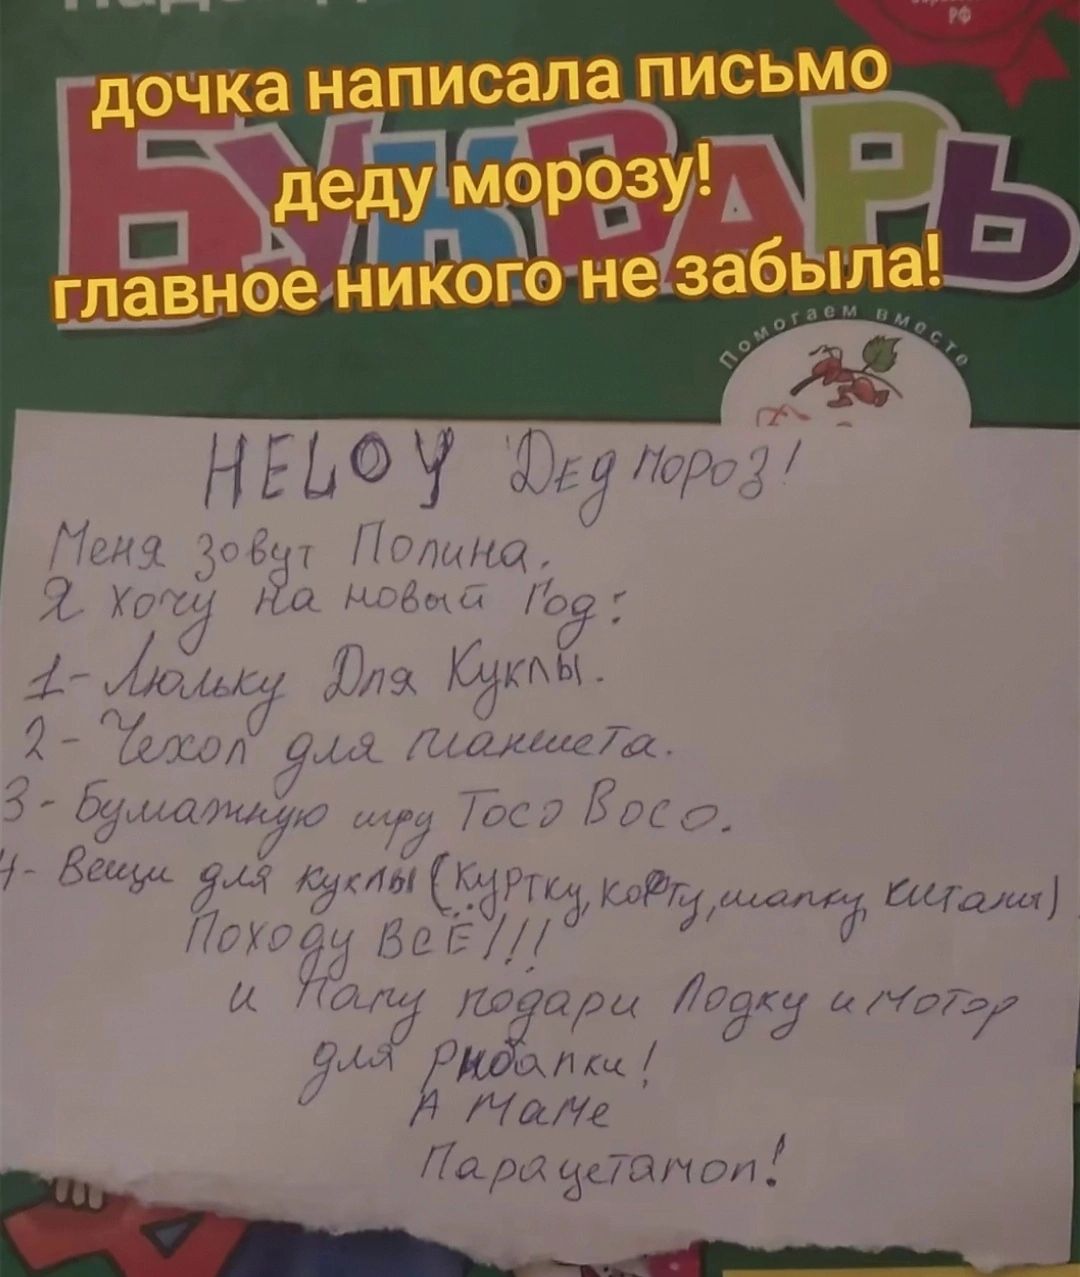 РФ
дочка написала письмо
деду морозу!
главное никого не забыла!
БУКВАРЬ
Помогаем вместе
HELOY Дед мороз!
Меня зовут Полина.
Я хочу на новый Год:
1- Люльку Для Куклы.
2- Чехол для планшета.
3- Бумажную игру Тосо Восо.
4- Вещи для куклы (Куртку, кофту, шапку, киганы)
Походу ВСЁ!!!
и Папу подари Лодку и мотор
для рыбалки!
А Маме
Парацетамол!